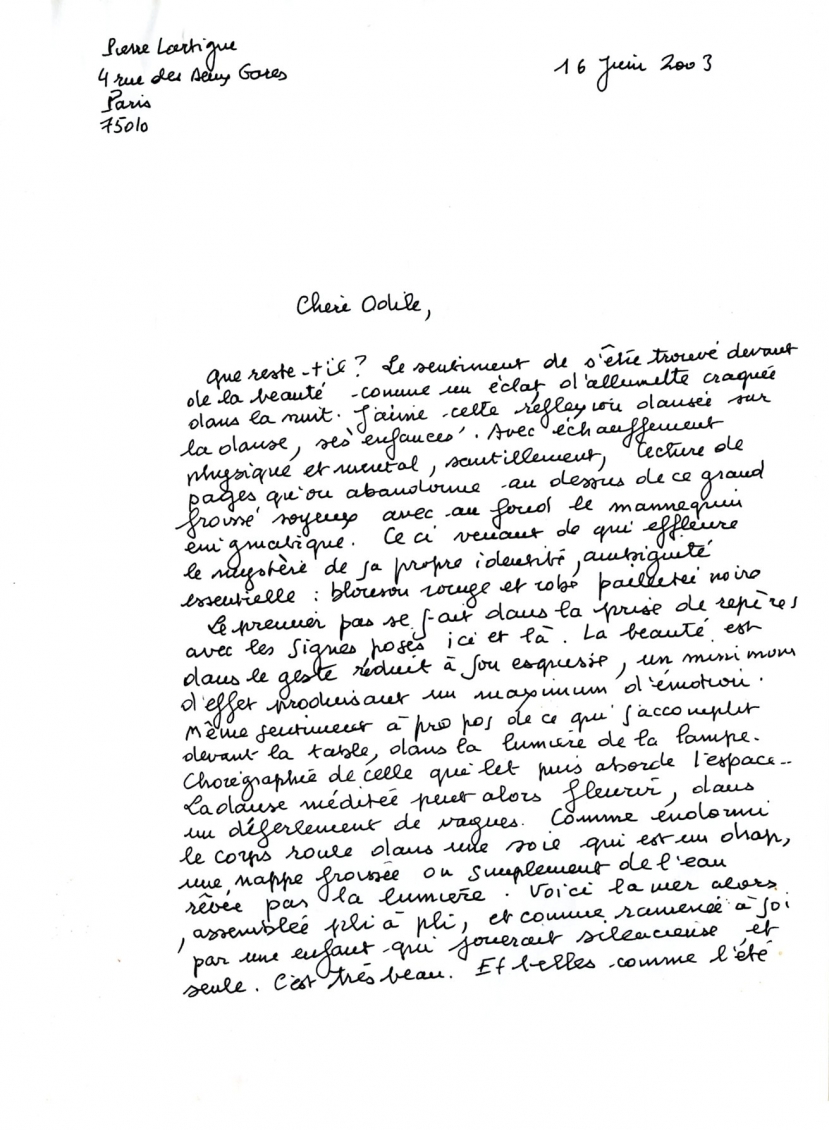 Pierre Lartigue
4 rue des Deux Gares
Paris
75010
16 Juin 2003
Chère Odile,
Que reste-t-il ? Le sentiment de s'être trouvé devant
de la beauté comme un éclat d'allumette craquée
dans la nuit. J'aime cette réflexion dansée sur
la danse, ses 'enfances'. Avec échauffement
physique et mental, sautillement, lecture de
pages qu'on abandonne au dessus de ce grand
froissé soyeux avec au fond le mannequin
énigmatique. Ce ci venant de qui effleure
le mystère de sa propre identité, ambiguïté
essentielle : blouson rouge et robe pailletée noire
Le premier pas se fait dans la prise de repères
avec les signes posés ici et là. La beauté est
dans le geste réduit à son esquisse, un minimum
d'effet produisant un maximum d'émotion.
Même sentiment à propos de ce qui s'accomplit
devant la table, dans la lumière de la lampe.
Chorégraphie de celle qui lit puis aborde l'espace...
La danse méditée peut alors fleurir, dans
un déferlement de vagues. Comme endormi
le corps roule dans une soie qui est un drap,
une nappe froissée ou simplement de l'eau
rêvée par la lumière. Voici la mer alors
, assemblée pli à pli, et comme ramenée à soi
par une enfant qui jouerait silencieuse et
seule. C'est très beau. Et belles comme l'été